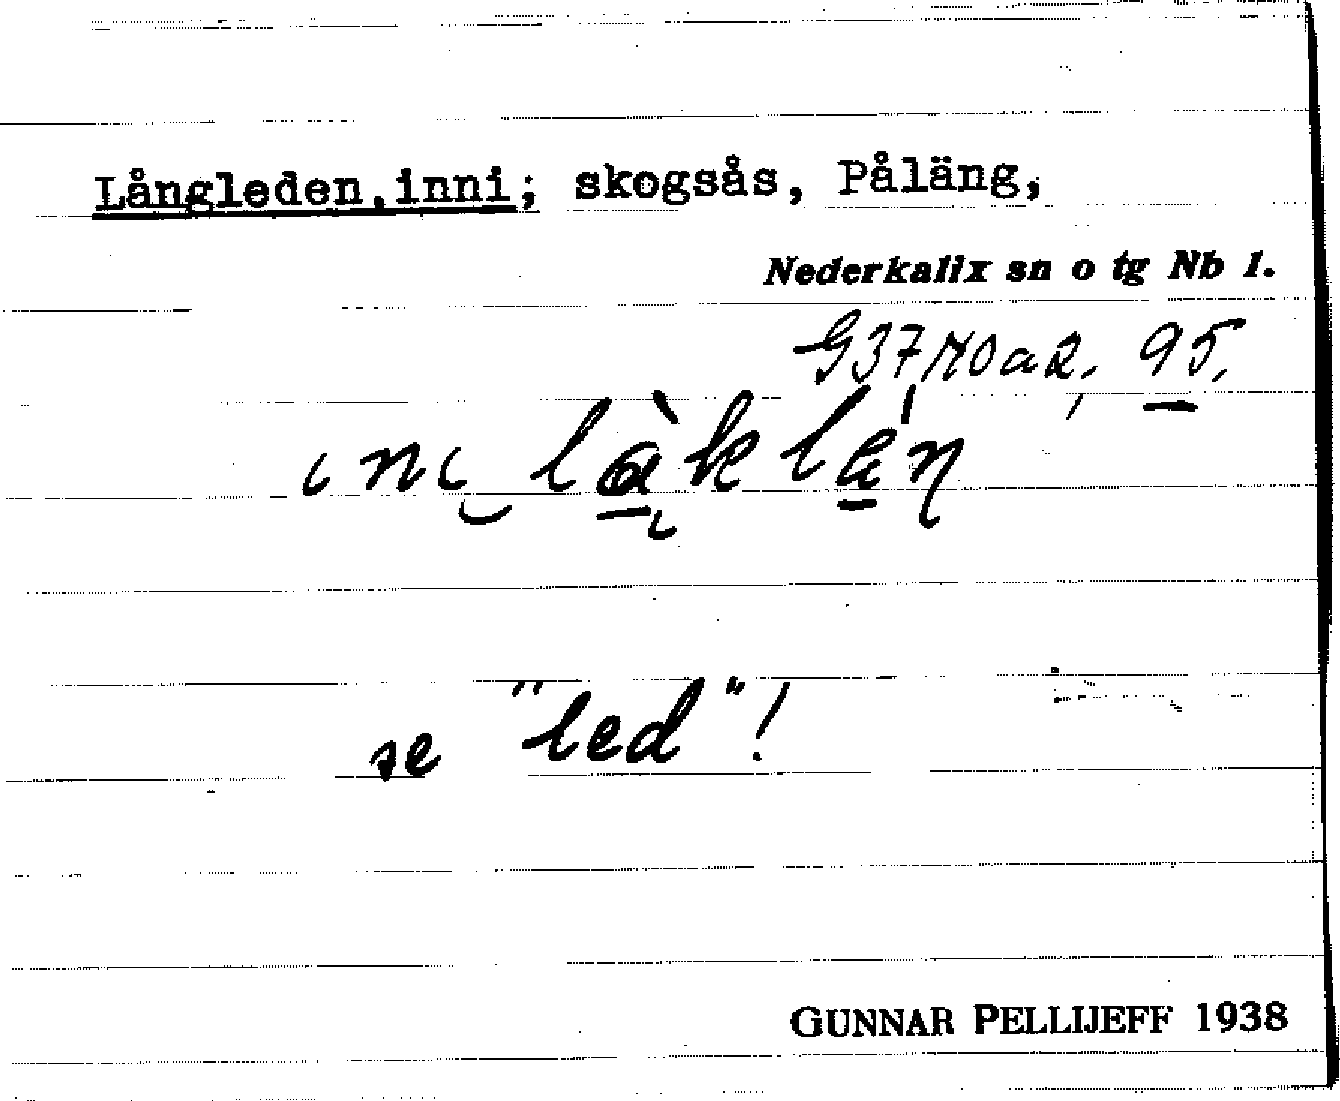 Långleden,inni; skogsås, Påläng,
Nederkalix sn o tg Nb l.
95.
se "led"!
GUNNAR PELLIJEFF 1938